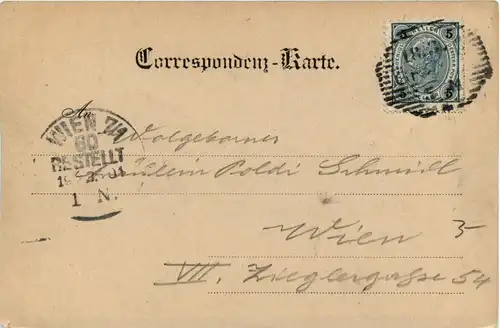 Correspondenz-Karte.
An
WIEN 7/1
60
BESTELLT
1 N.
Wolgebornes
Fräulein Poldi Schmidt
Wien
VII. Zieglergasse 54
5 5
5 5